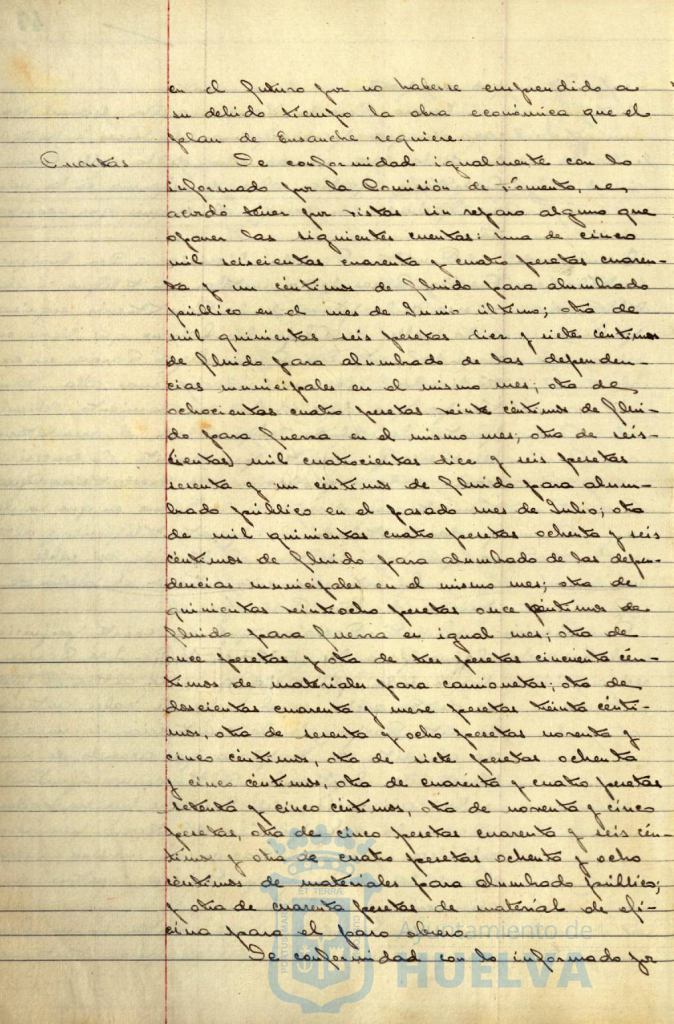 en el futuro por no haberse emprendido a
su debido tiempo la obra económica que el
plan de Ensanche requiere.
Cuentas
De conformidad igualmente con lo
informado por la Comisión de Fomento, se
acordó tener por vistas sin reparo alguno que
oponer las siguientes cuentas: una de cinco
mil seiscientas cuarenta y cuatro pesetas cuaren-
ta y un céntimos de fluido para alumbrado
público en el mes de Junio último; otra de
mil quinientas seis pesetas diez y siete céntimos
de fluido para alumbrado de las dependen-
cias municipales en el mismo mes; otra de
ochocientas cuatro pesetas veinte céntimos de flui-
do para fuerza en el mismo mes; otra de seis
mil cuatrocientas diez y seis pesetas
sesenta y un céntimos de fluido para alum-
brado público en el pasado mes de Julio; otra
de mil quinientas cuatro pesetas ochenta y seis
céntimos de fluido para alumbrado de las depen-
dencias municipales en el mismo mes; otra de
quinientas veintiocho pesetas once céntimos de
fluido para fuerza en igual mes; otra de
once pesetas y otra de tres pesetas cincuenta cén-
timos de materiales para camionetas; otra de
doscientas cuarenta y nueve pesetas treinta cénti-
mos, otra de sesenta y ocho pesetas noventa y
cinco céntimos, otra de siete pesetas ochenta
y cinco céntimos, otra de cuarenta y cuatro pesetas
setenta y cinco céntimos, otra de noventa y cinco
pesetas, otra de cinco pesetas cuarenta y seis cén-
timos y otra de cuatro pesetas ochenta y ocho
céntimos de materiales para alumbrado público;
y otra de cuarenta pesetas de material de ofi-
cina para el paro obrero.
De conformidad con lo informado por
Ayuntamiento de
HUELVA